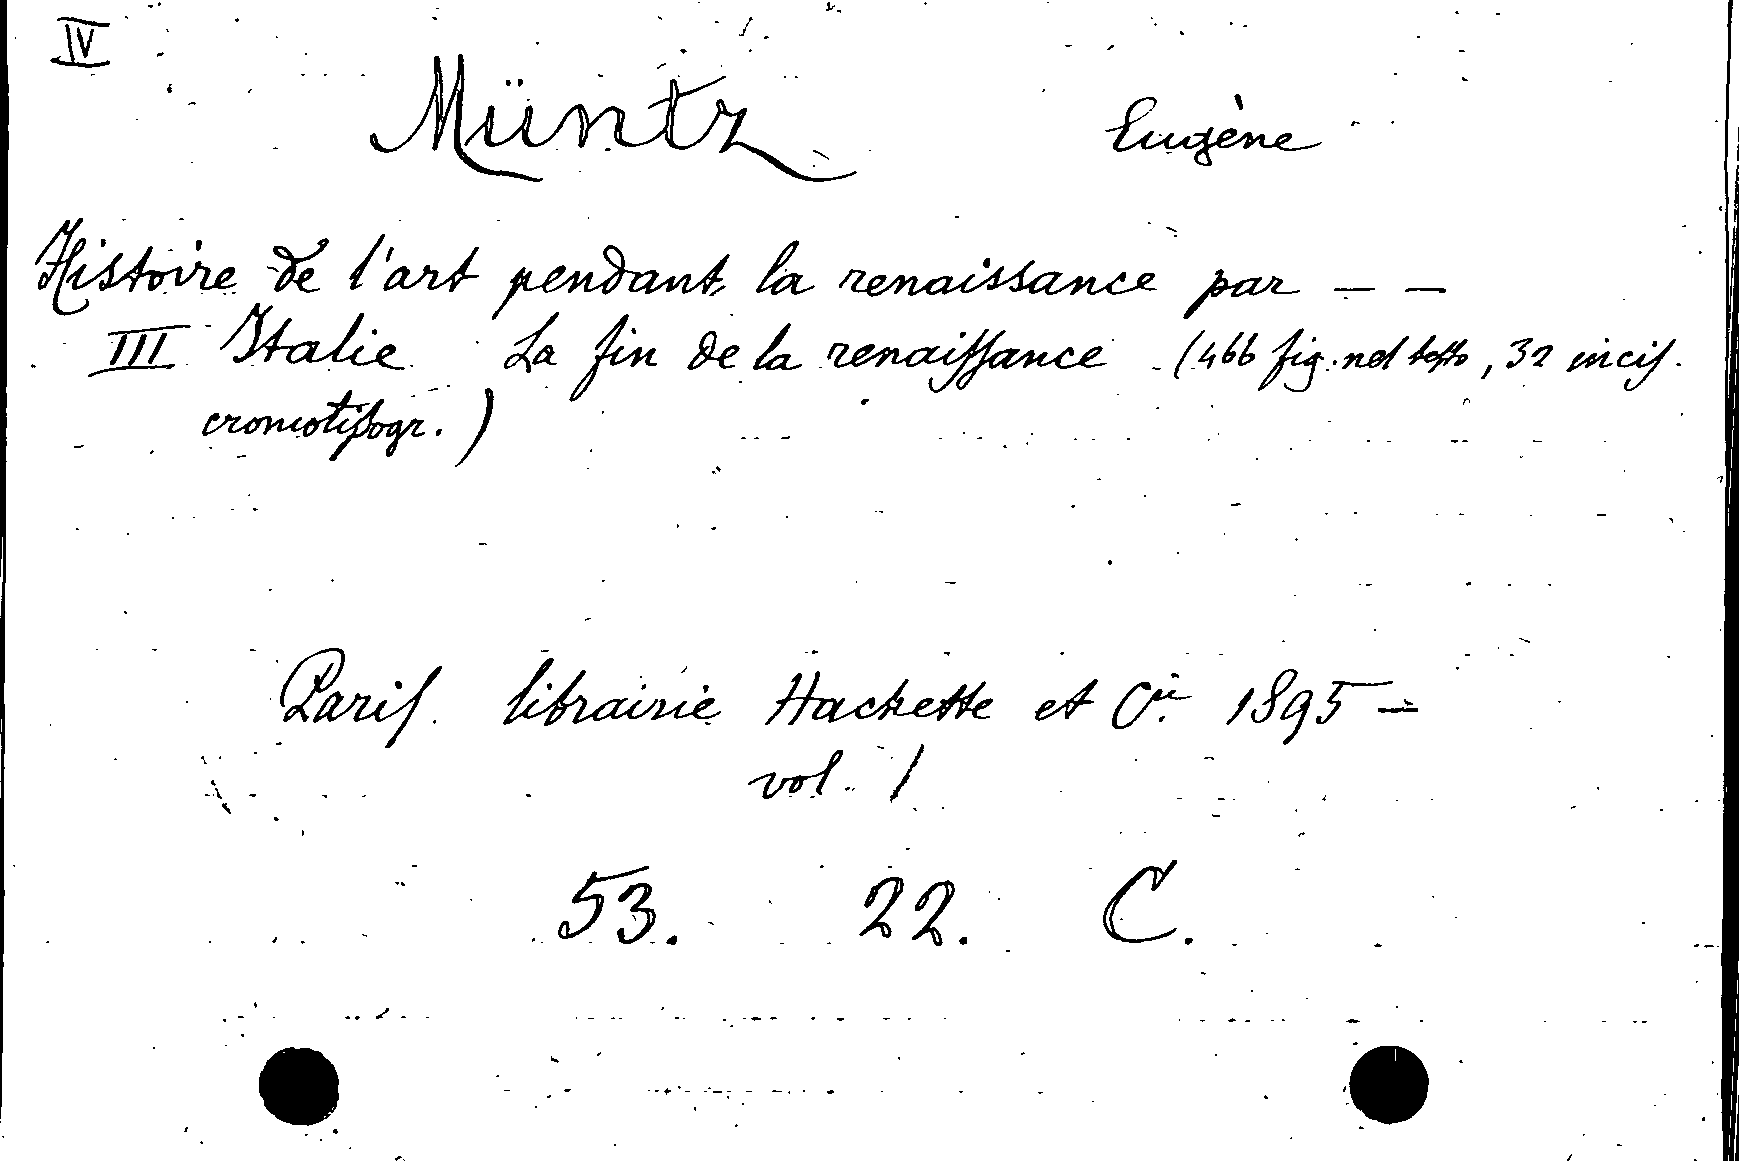 IV
Müntz Eugène
Histoire de l'art pendant la renaissance par – –
III Italie La fin de la renaissance (466 fig. nel testo, 32 incis.
cromotipogr.)
Paris librairie Hachette et Cie 1895 –
vol. 1
53. 22. C.